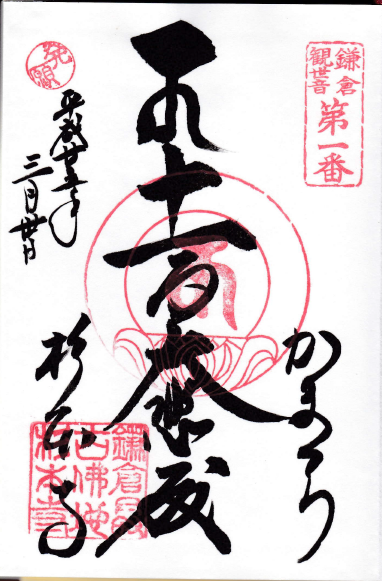 鎌倉
観世音
第一番
かまくら
十一面大悲殿
発願
平成廿五年
三月
杉本寺
鎌倉最
古佛地
杉本寺